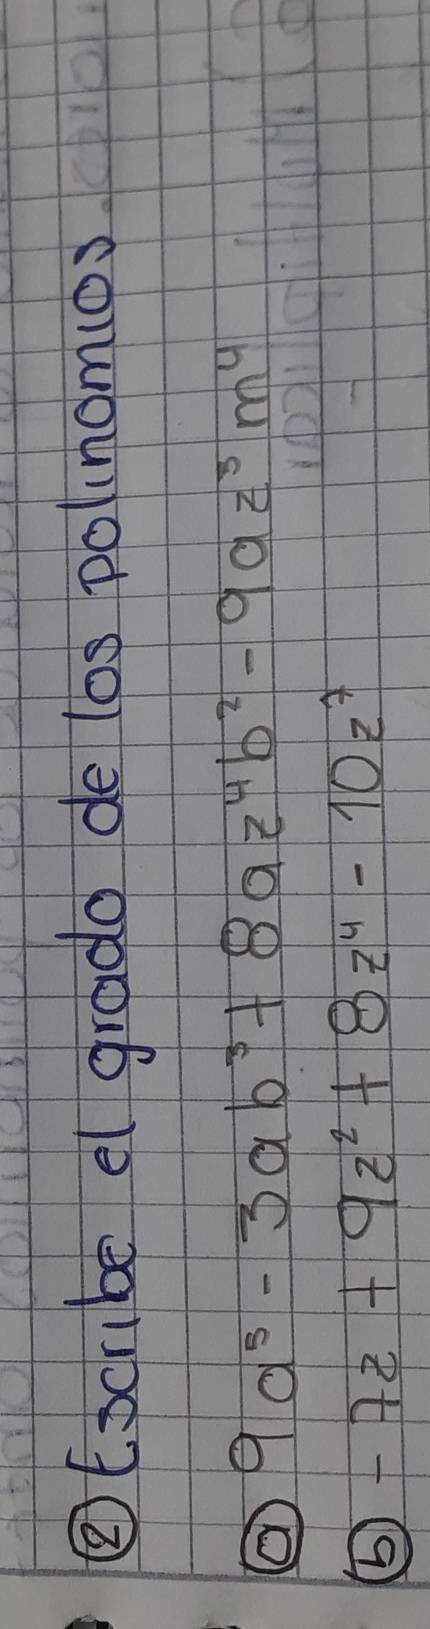 ② Escribe el grado de los polinomios.
ⓐ 9a⁵ - 3ab³ + 8az⁴b² - 9az⁵m⁴
ⓑ - 7z + 9z² + 8z⁴ - 10z⁷